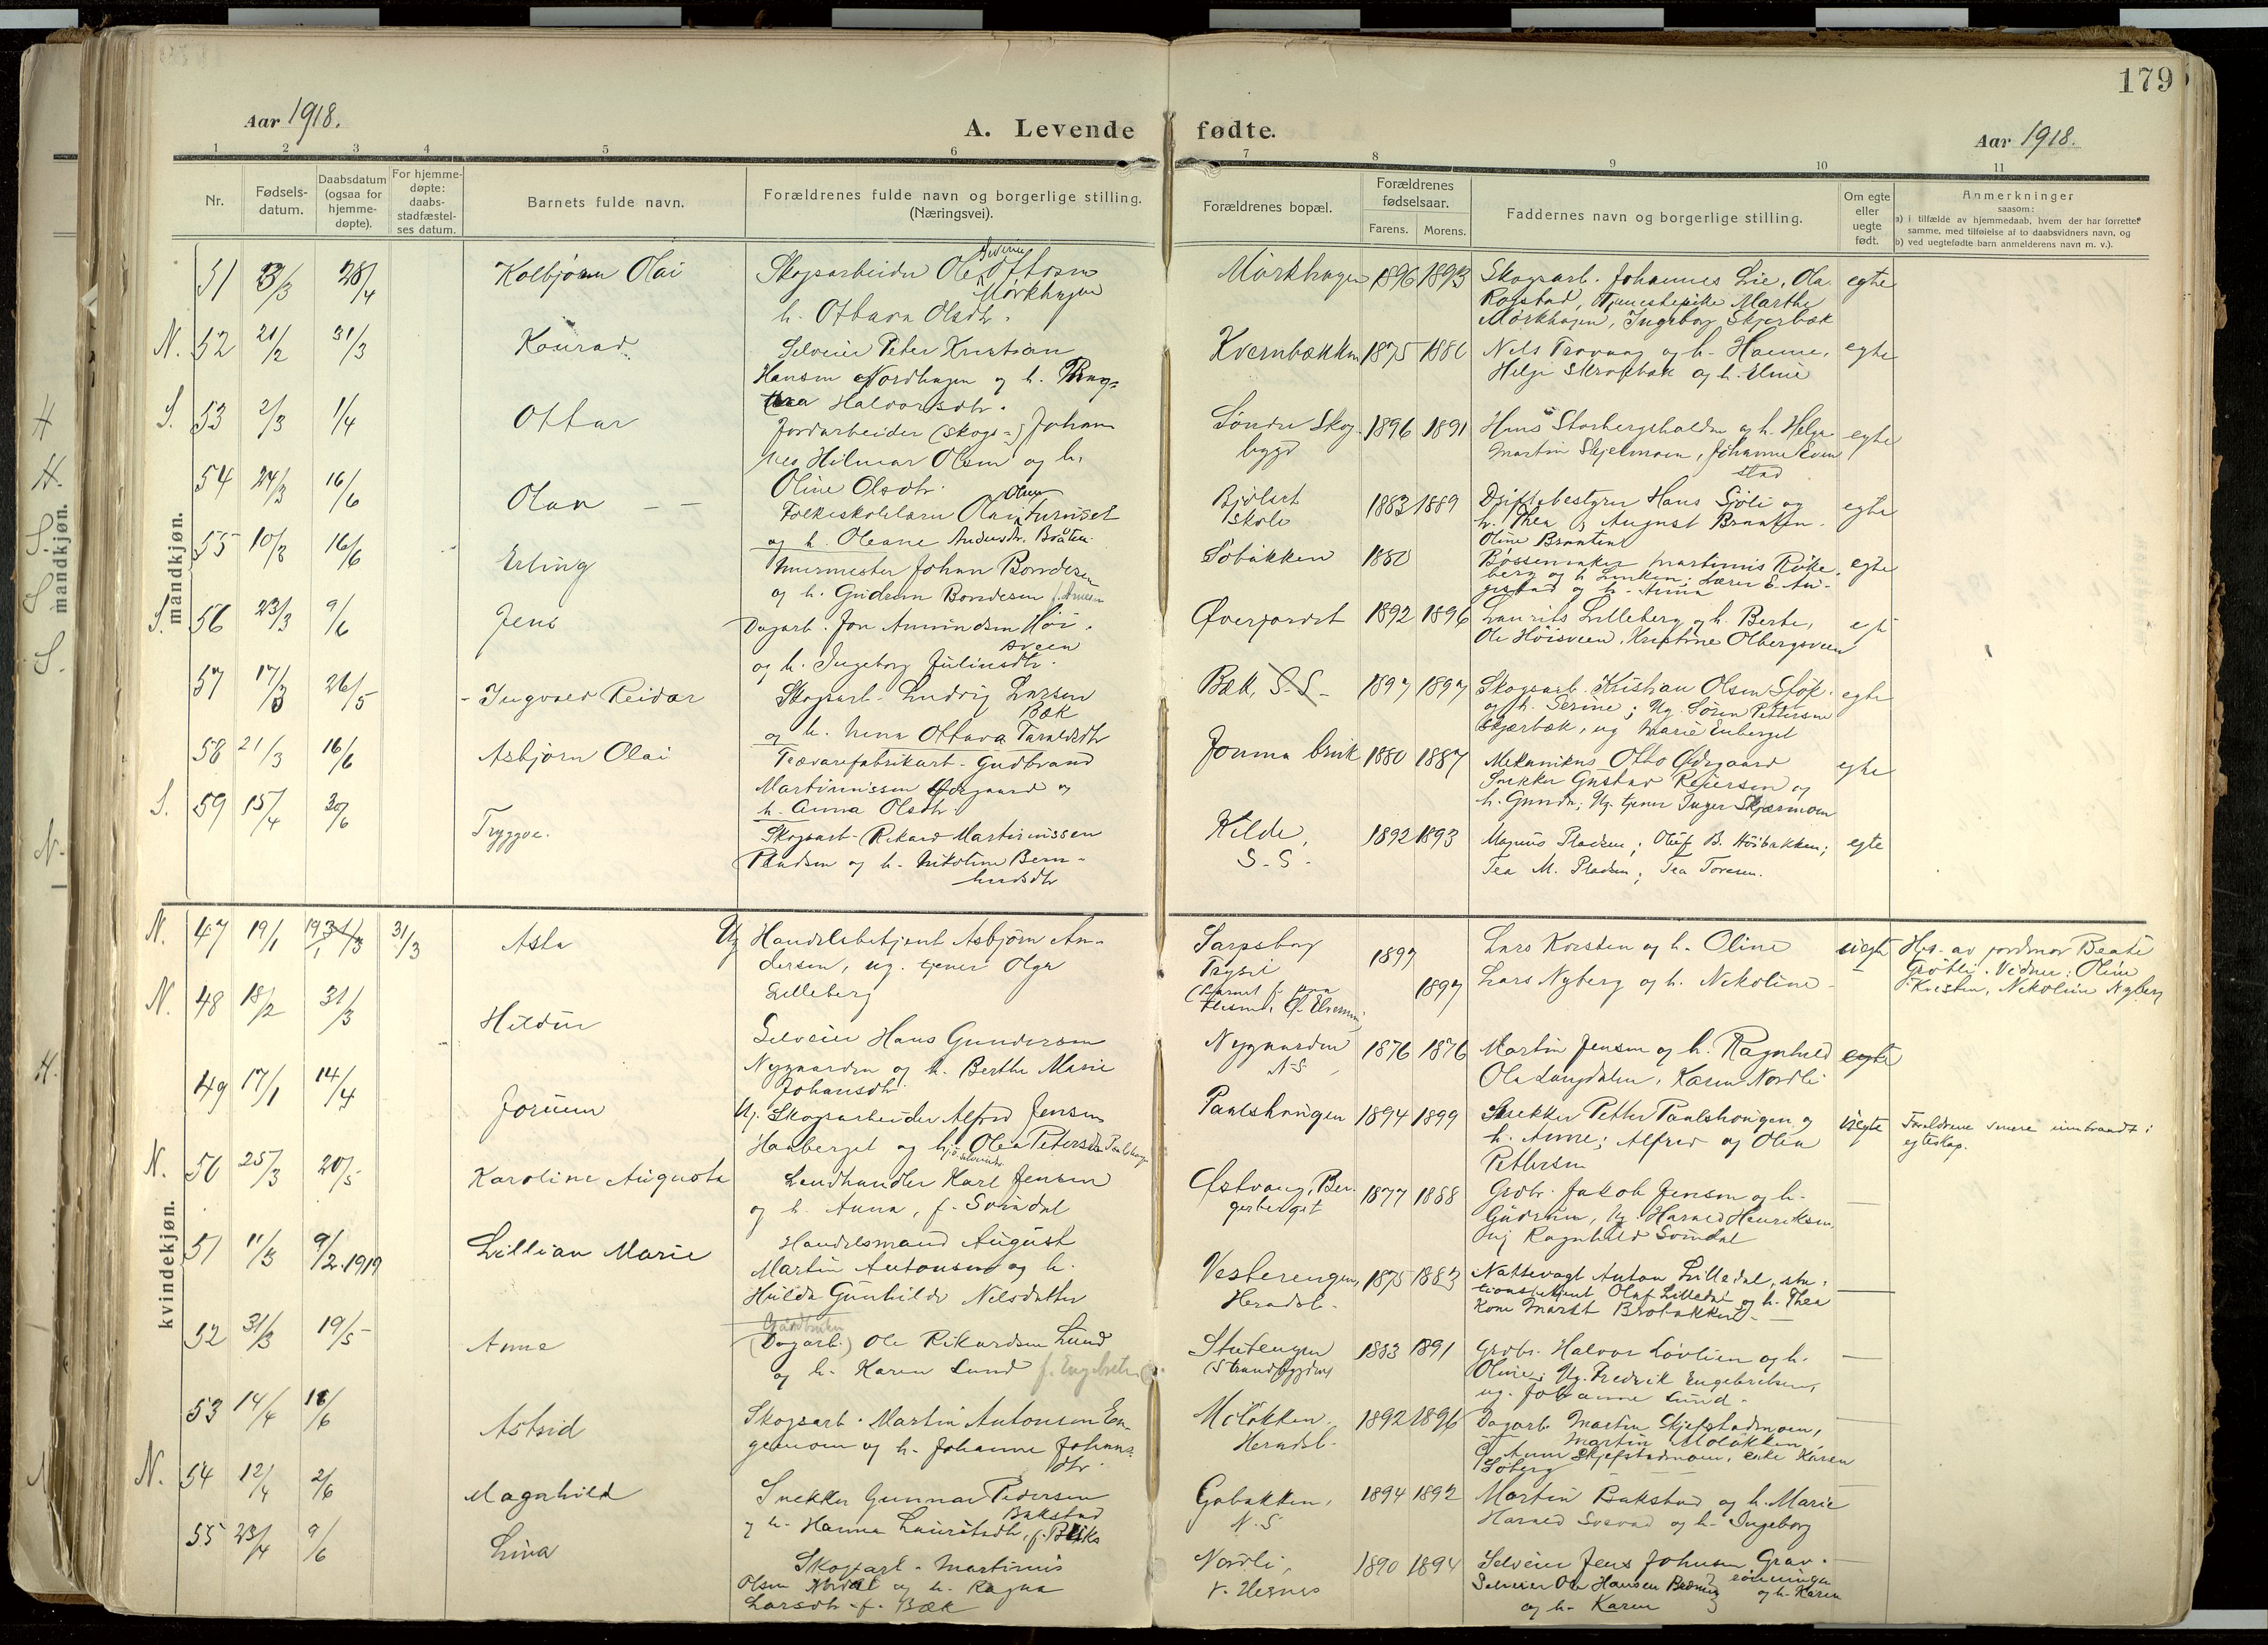 179
Aar 1918.
A. Levende fødte.
Aar 1918.
1 2 3 4 5 6 7 8 9 10 11
Nr.
Fødsels-
datum.
Daabsdatum
(ogsaa for
hjemme-
døpte).
For hjemme-
døpte:
daabs-
stadfæstel-
ses datum.
Barnets fulde navn.
Forældrenes fulde navn og borgerlige stilling.
(Næringsvei).
Forældrenes bopæl.
Forældrenes
fødselsaar.
Farens. Morens.
Faddernes navn og borgerlige stilling.
Om egte
eller
uegte
født.
Anmerkninger
saasom:
a) i tilfælde av hjemmedaab, hvem der har forrettet
samme, med tilføielse af to daabsvidners navn, og
b) ved uegtefødte barn anmelderens navn m. v.).
mandkjøn.
51 28/4 Kolbjørn Olai
Skogsarbeider Ole
Mørkhagen
h. Ottava Olsdtr.
Mørkhagen 1896 1893
Skogsarb. Johannes Lie, Ola
Rogstad, Tjenestepike Marthe
Mørkhagen, Ingeborg Skjerbæk
egte
N. 52 21/2 31/3 Konrad
Selveier Peter Kristian
Hansen Nordhagen og h.
Halvorsdtr.
Kvernbækken 1875
Nels og h. Hanne,
Helge og h. Eline
egte
S. 53 2/3 1/4 Ottar
Jordarbeider (skogs-) Johan-
nes Hilmar Olsen og h.
Oline Olsdtr.
Søndre Skog-
bygd
1896 1891
Hans Storbergshalden og h. Helga
Martin Skjelmoen, Johanne Even-
stad
egte
54 24/3 16/6 Olav
Folkeskolelærer Olai Olsen Furuset
og h. Oleane Andersdtr. Bråten.
skole
1883 1889
Driftsbestyrer Hans Sjøli og
h. Thea, August Braaten.
Oline Braaten
egte
55 16/6 Erling
Murmester Johan Bondesen
og h. Gudrun Bondesen
Søbakken 1880
Bøssemaker Martinius Røke-
berg og h.
og h. Anna
egte
S. 56 23/3 9/6 Jens
Dagarb. Jon Amundsen Høi-
sveen
og h. Ingeborg Juliusdtr.
Øverjordet 1892 1896
Laurits Lilleberg og h. Berte,
Ole Høisveen, Kristine Olbergsveen
57 17/3 26/5 Ingvald Reidar
Skogsarb. Ludvig Larsen
Bæk
og h. Ottava Taraldsdtr
Bæk, S.S. 1897 1897
Skogsarb. Kristian Olsen
og h. Serine; Ug. Søren Pettersen
Skjærbæk, ug Marie Enberget
egte
58 21/3 16/6 Asbjørn Olai
Trævarefabrikarb. Gudbrand
Martinussen Ødegaard og
h. Anna Olsdtr.
Jomna bruk 1880 1887
Mekanikus Otto Ødegaard
Snekker Gustav Reiersen og
h. Gunda; Ug. tjener Inger Skjærmoen
egte
S. 59 15/4 30/6 Tryggve.
Skogsarb. Rikard Martinussen
Pladsen og h. Nikoline Bern-
hardsdtr
Kilde,
S.S.
1892 1893
Magnus Pladsen; Oluf B. Høibakken;
Tea M. Pladsen; Tea Toresen.
egte
kvindekjøn.
N. 47 19/1 31/3 Asta
Ug Handelsbetjent Asbjørn An-
dersen, ug. tjener Olga
Lilleberg
Sarpsborg 1897
Trysil 1897
Lars Korsten og h. Oline
Lars Nyberg og h. Nekoline
uegte
Hj. av jordmor Beate
Grøtli. Vidner: Oline
Korsten, Nekoline Nyberg
N. 48 18/2 31/3 Hildur
Selveier Hans Gundersen
Nygaarden og h. Berthe Marie
Johansdtr
Nygaarden
N.S.
1876 1876
Martin Jensen og h. Ragnhild
Ola Langdalen, Karen Nordli
egte
49 17/1 14/4 Jorunn
Ug. Skogsarbeider Alfred Jensen
Haaberget og Olea Petersdtr Paalshaugen
Paalshaugen 1894 1899
Snekker Petter Paalshaugen og
h. Anne; Alfred og Olea
Pettersen
uegte
Foreldrene senere inntraadt i
egteskap.
N. 50 25/3 20/5 Karoline Augusta
Landhandler Karl Jensen
og h. Anna, f. Svindal
Østvang, Ber-
gerberget
1877 1888
Grdbr. Jakob Jensen og h.
Gudrun, Ug. Harald Henriksen,
Pij Ragnhild Svindal
51 11/3 9/2 1919 Lillian Marie
Handelsmand August
Martin Antonsen og h.
Hulda Gunhilde Nilsdatter
Vesterengen,
Heradsb.
1875 1883
Nattevagt Anton Lilledal, sta-
tionsbetjent Olaf Lilledal og h. Thea
Kone Marit Brobakken
52 31/3 19/5 Anne
Gårdbruker
(Dagarb.) Ole Rikardsen Lund
og h. Karen Lund f. Engebretsen
Stutengen
(Strandbygden)
1883 1891
Grdbr. Halvor Løvlien og h.
Oline; Ug. Fredrik Engebretsen,
ug. Johanne Lund.
53 14/4 16/6 Astrid
Skogsarb. Martin Antonsen En-
gemoen og h. Johanne Johans-
dtr.
Moløkken
Heradsb.
1892 1896
Dagarb Martin Skjefstadmoen,
Martin Moløkken,
Anne Skjefstadmoen, enke Karen
Søberg
N. 54 12/4 2/6 Magnhild
Snekker Gunnar Pedersen
Bakstad
og h. Hanna Lauritsdtr,
Gobakken,
N.S
1894 1892
Martin Bakstad og h. Marie
Harald og h. Ingeborg
55 23/4 9/6 Liva
Skogsarb. Martinus
Olsen og h. Ragna
Larsdtr f. Bæk
Nordli,
v. Hernes
1890 1894
Selveier Jens Johnsen Grav-
rønningen
og h. Karen
Selveier Ole Hansen
og h. Karen